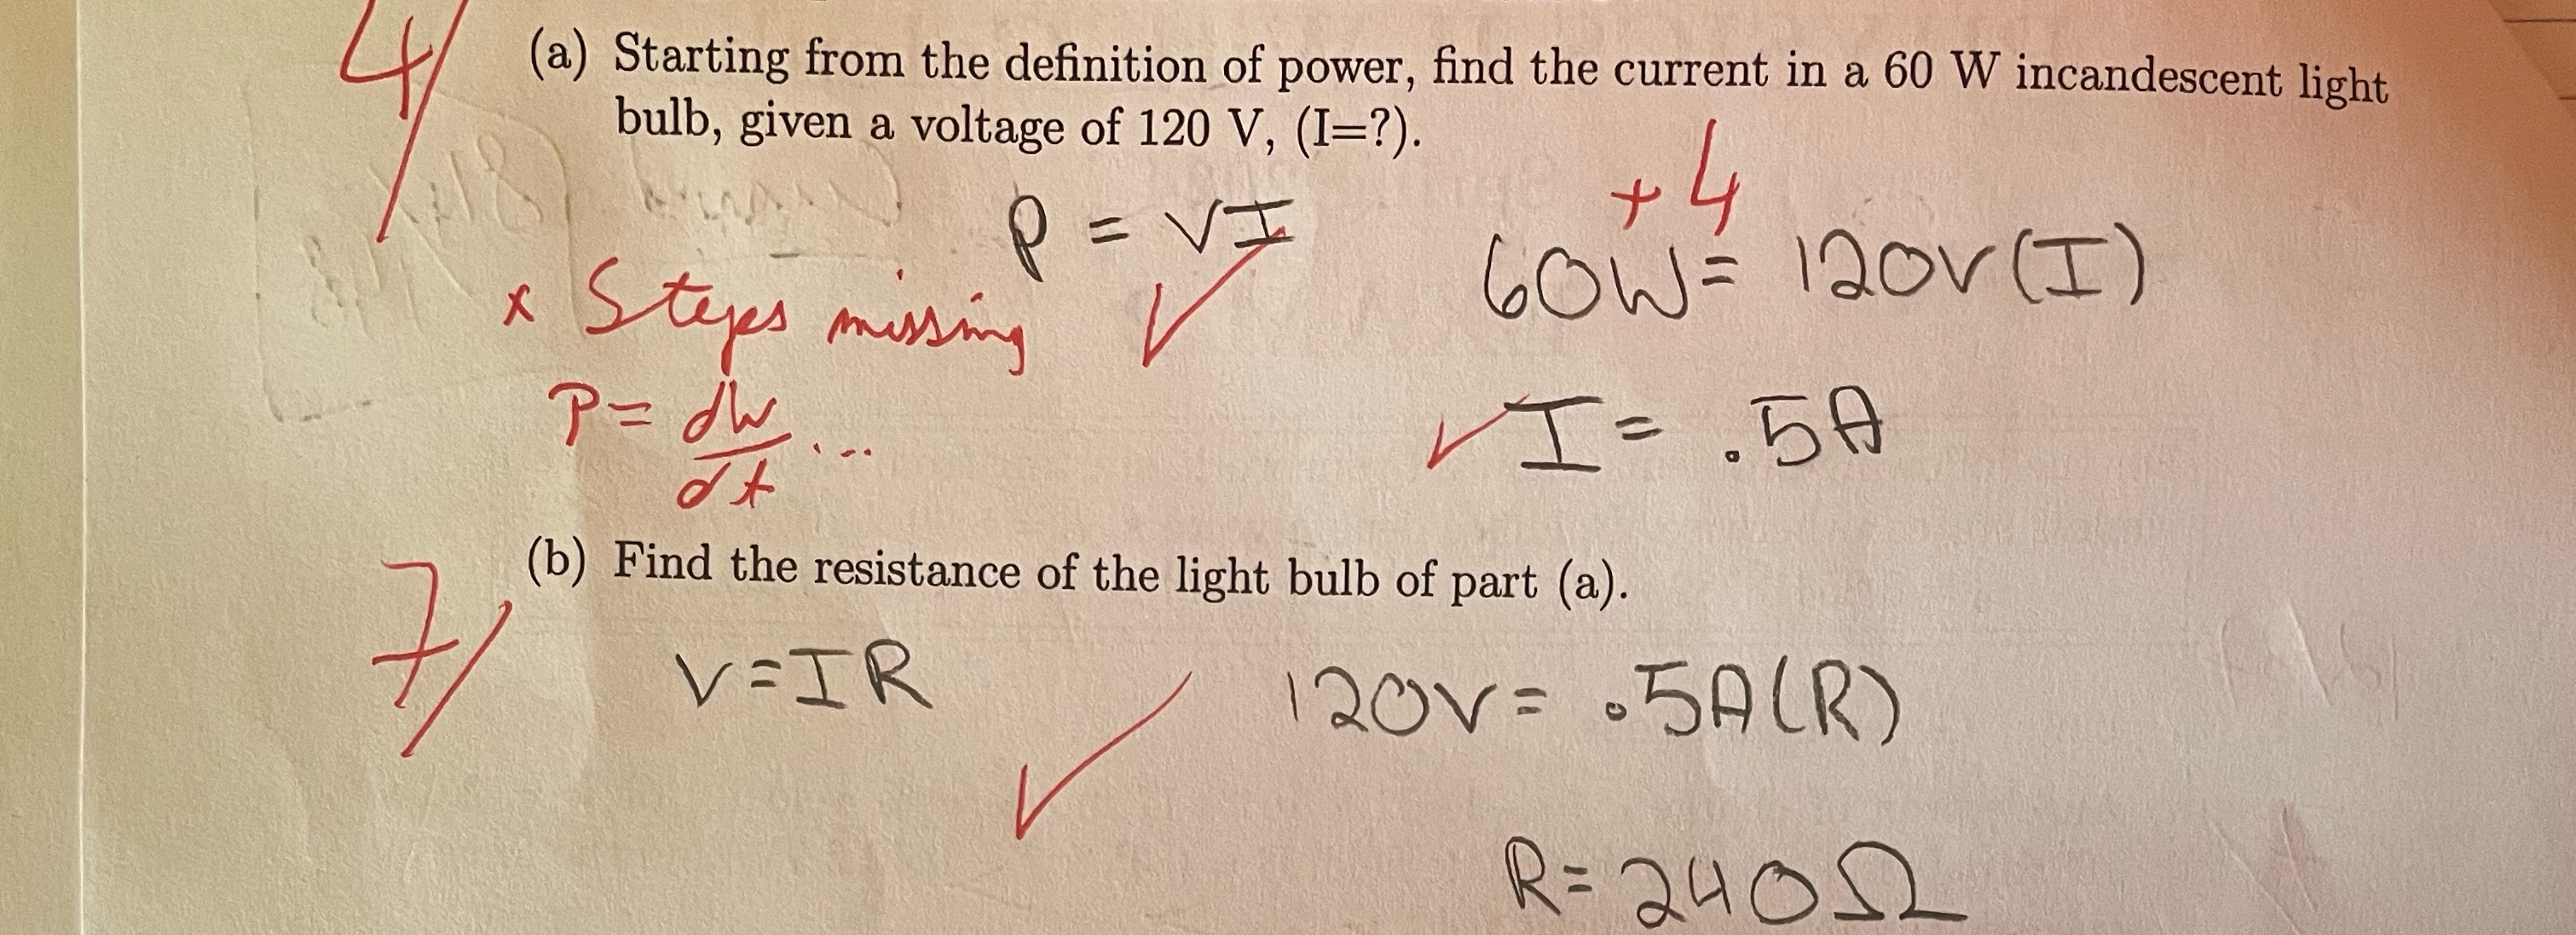 4/
(a) Starting from the definition of power, find the current in a 60 W incandescent light
bulb, given a voltage of 120 V, (I=?).
+4
P = VI
60W = 120V(I)
x Steps missing
P = dW/dt ...
I = .5A
7/
(b) Find the resistance of the light bulb of part (a).
V=IR
120V = .5A(R)
R=240Ω